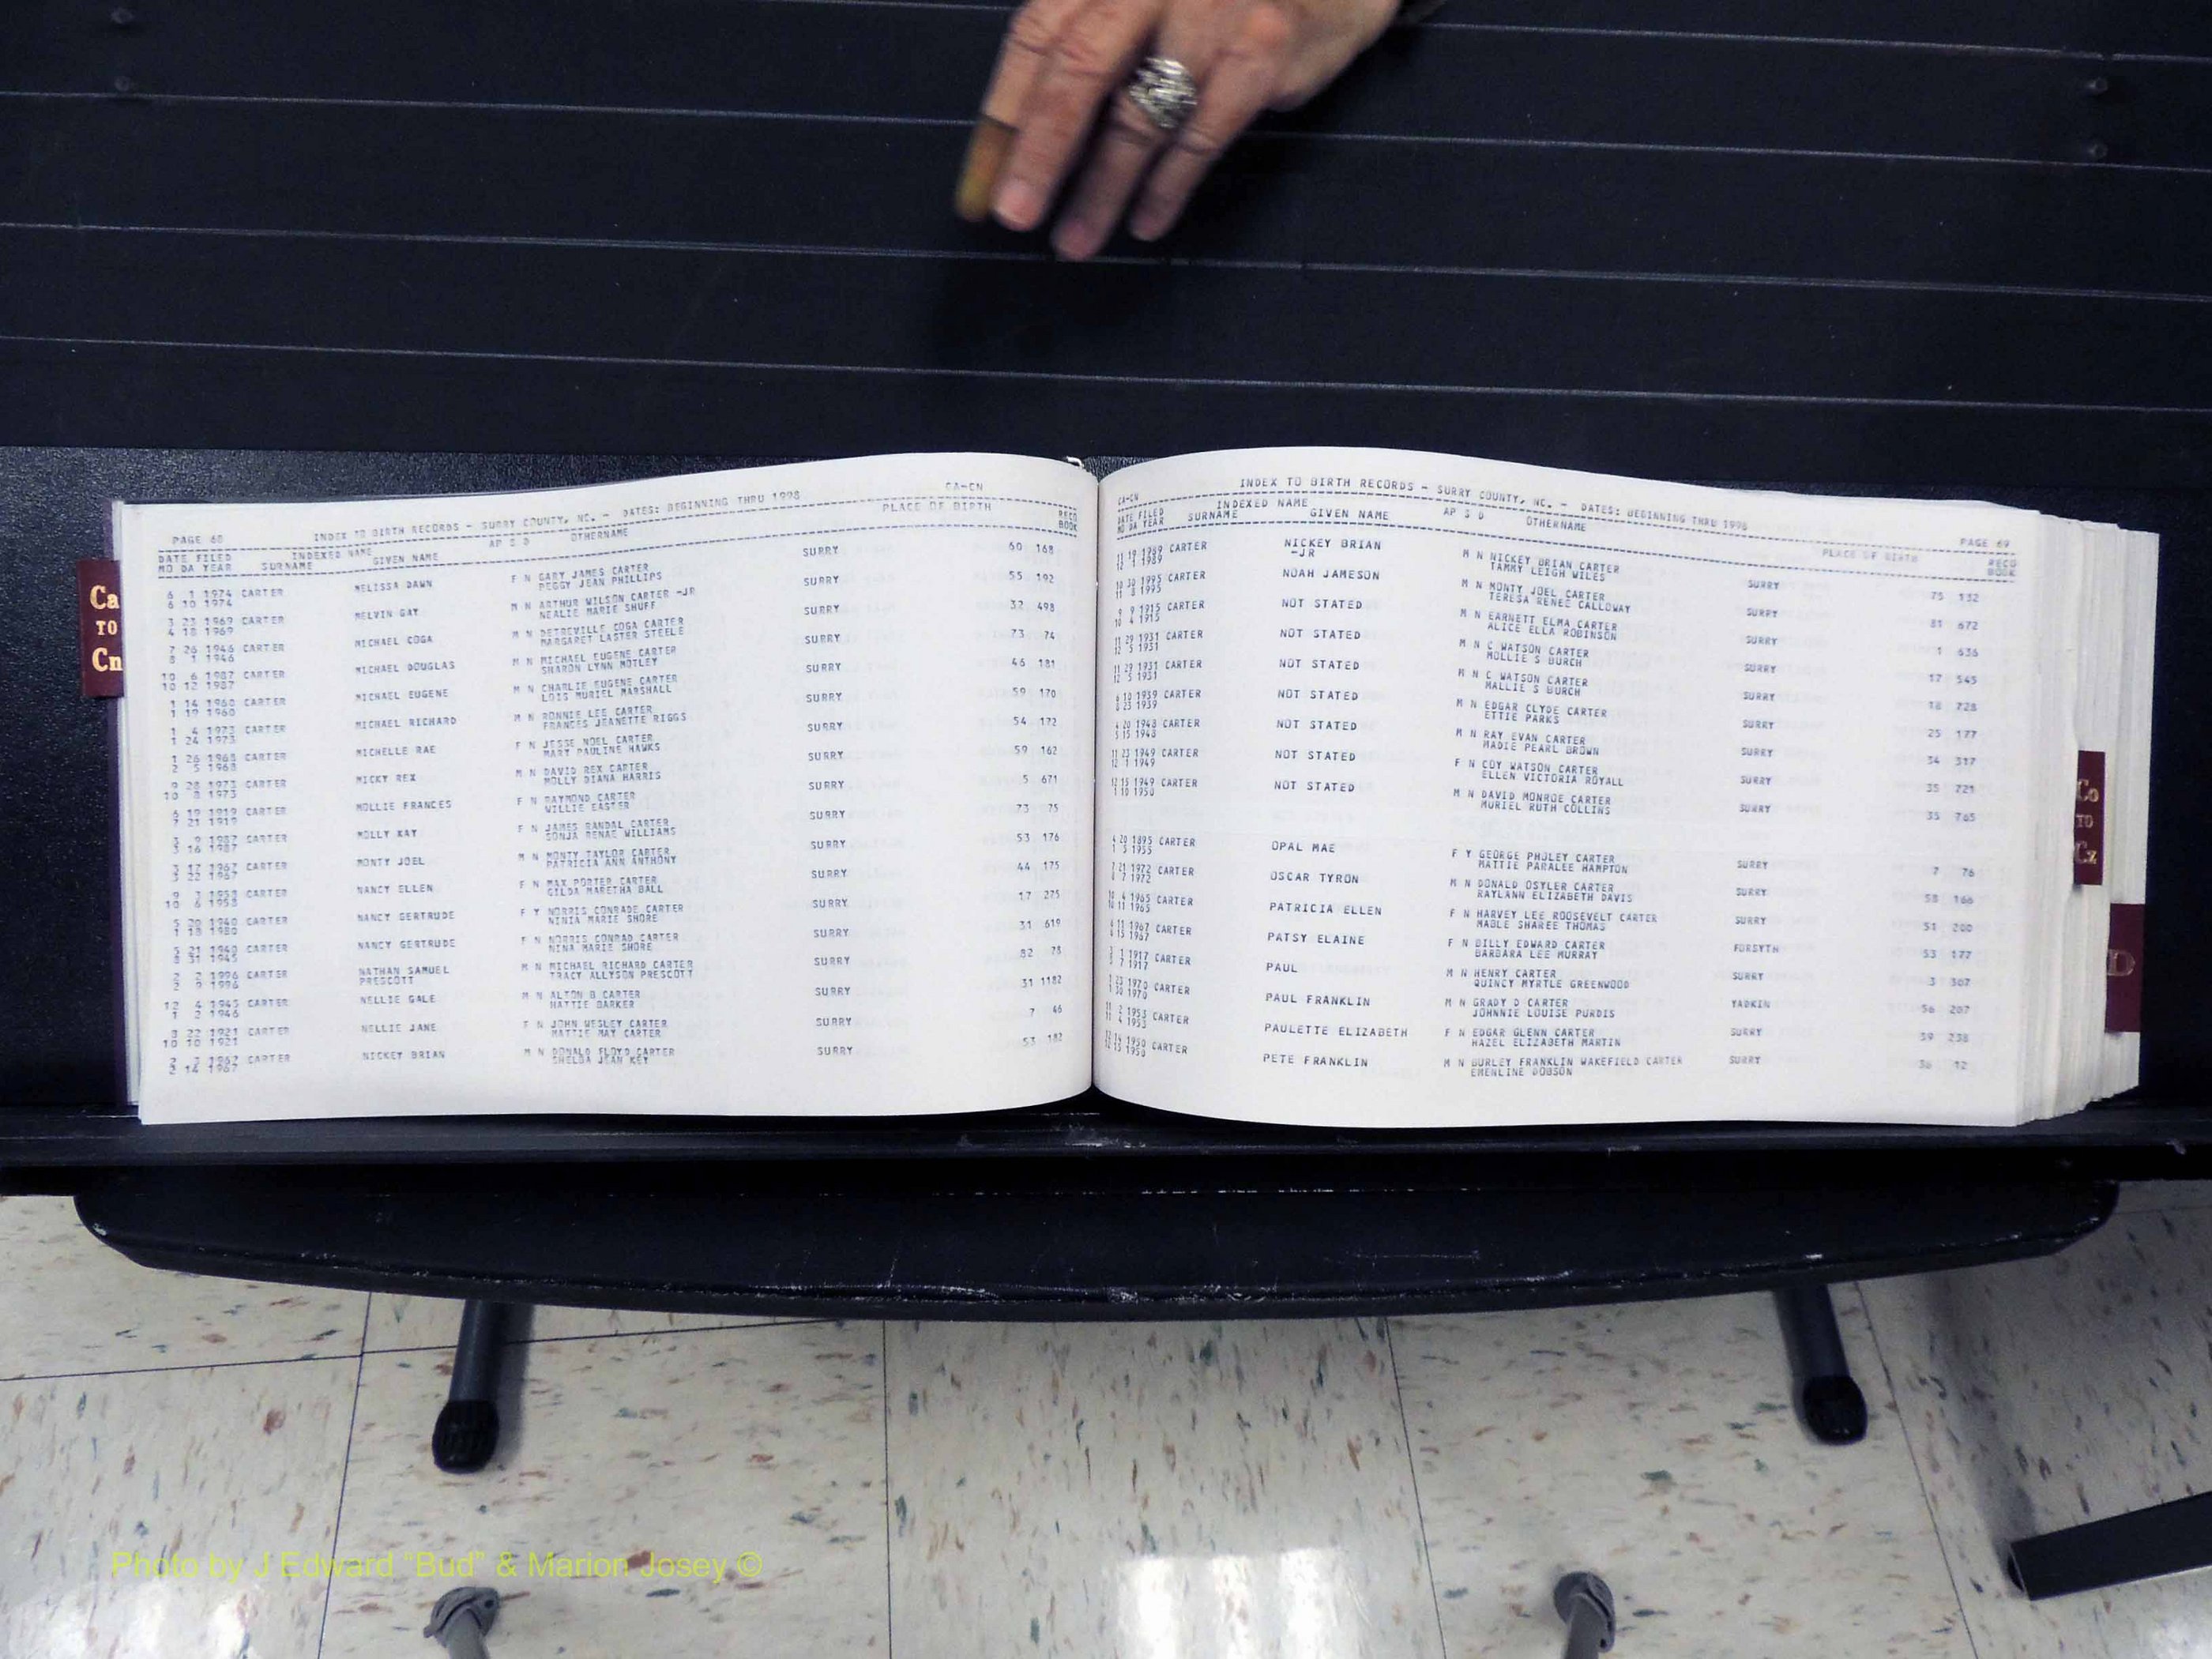 PAGE 68 INDEX TO BIRTH RECORDS - SURRY COUNTY, NC. - DATES: BEGINNING THRU 1998 CA-CN
DATE FILED INDEXED NAME AP S D OTHERNAME PLACE OF BIRTH RECD
MO DA YEAR SURNAME GIVEN NAME BOOK
6 1 1974 CARTER MELISSA DAWN F N GARY JAMES CARTER SURRY 60 168
6 10 1974 PEGGY JEAN PHILLIPS
3 23 1969 CARTER MELVIN GAY M N ARTHUR WILSON CARTER -JR SURRY 55 192
4 18 1969 NEALIE MARIE SHUFF
7 26 1946 CARTER MICHAEL COGA M N DETREVILLE COGA CARTER SURRY 32 498
8 1 1946 MARGARET LASTER STEELE
10 6 1987 CARTER MICHAEL DOUGLAS M N MICHAEL EUGENE CARTER SURRY 73 74
10 12 1987 SHARON LYNN MOTLEY
1 14 1960 CARTER MICHAEL EUGENE M N CHARLIE EUGENE CARTER SURRY 46 181
1 19 1960 LOIS MURIEL MARSHALL
1 4 1973 CARTER MICHAEL RICHARD M N RONNIE LEE CARTER SURRY 59 170
1 24 1973 FRANCES JEANETTE RIGGS
1 26 1968 CARTER MICHELLE RAE F N JESSE NOEL CARTER SURRY 54 172
2 5 1968 MARY PAULINE HAWKS
9 28 1973 CARTER MICKY REX M N DAVID REX CARTER SURRY 59 162
10 8 1973 MOLLY DIANA HARRIS
6 19 1919 CARTER MOLLIE FRANCES F N RAYMOND CARTER SURRY 5 671
7 21 1919 WILLIE EASTER
3 9 1987 CARTER MOLLY KAY F N JAMES RANDAL CARTER SURRY 73 75
3 16 1987 SONJA RENAE WILLIAMS
3 17 1967 CARTER MONTY JOEL M N MONTY TAYLOR CARTER SURRY 53 176
3 22 1967 PATRICIA ANN ANTHONY
9 3 1958 CARTER NANCY ELLEN F N MAX PORTER CARTER SURRY 44 175
10 6 1958 GILDA MARETHA BALL
5 20 1940 CARTER NANCY GERTRUDE F Y NORRIS CONRADE CARTER SURRY 17 275
1 18 1980 NINIA MARIE SHORE
5 21 1940 CARTER NANCY GERTRUDE F N NORRIS CONRAD CARTER SURRY 31 619
8 31 1945 NINA MARIE SHORE
2 2 1996 CARTER NATHAN SAMUEL M N MICHAEL RICHARD CARTER SURRY 82 78
2 9 1996 PRESCOTT TRACY ALLYSON PRESCOTT
12 4 1945 CARTER NELLIE GALE M N ALTON B CARTER SURRY 31 1182
1 2 1946 HATTIE BARKER
8 22 1921 CARTER NELLIE JANE F N JOHN WESLEY CARTER SURRY 7 46
10 10 1921 MATTIE MAY CARTER
2 3 1967 CARTER NICKEY BRIAN M N DONALD FLOYD CARTER SURRY 53 182
2 14 1967 SHELDA JEAN KEY
CA-CN INDEX TO BIRTH RECORDS - SURRY COUNTY, NC. - DATES: BEGINNING THRU 1998 PAGE 69
DATE FILED INDEXED NAME AP S D OTHERNAME PLACE OF BIRTH RECD
MO DA YEAR SURNAME GIVEN NAME BOOK
11 19 1989 CARTER NICKEY BRIAN M N NICKEY BRIAN CARTER SURRY 75 132
12 1 1989 -JR TAMMY LEIGH WILES
10 30 1995 CARTER NOAH JAMESON M N MONTY JOEL CARTER SURRY 81 672
11 8 1995 TERESA RENEE CALLOWAY
9 9 1915 CARTER NOT STATED M N EARNETT ELMA CARTER SURRY 1 636
10 4 1915 ALICE ELLA ROBINSON
11 29 1931 CARTER NOT STATED M N C WATSON CARTER SURRY 17 545
12 5 1931 MOLLIE S BURCH
11 29 1931 CARTER NOT STATED M N C WATSON CARTER SURRY 18 728
12 5 1931 MALLIE S BURCH
6 10 1939 CARTER NOT STATED M N EDGAR CLYDE CARTER SURRY 25 177
8 23 1939 ETTIE PARKS
4 20 1948 CARTER NOT STATED M N RAY EVAN CARTER SURRY 34 317
5 15 1948 MADIE PEARL BROWN
11 23 1949 CARTER NOT STATED F N COY WATSON CARTER SURRY 35 721
12 1 1949 ELLEN VICTORIA ROYALL
12 15 1949 CARTER NOT STATED M N DAVID MONROE CARTER SURRY 35 765
1 10 1950 MURIEL RUTH COLLINS
4 20 1895 CARTER OPAL MAE F Y GEORGE PHOLEY CARTER SURRY 7 76
1 5 1955 MATTIE PARALEE HAMPTON
7 21 1972 CARTER OSCAR TYRON M N DONALD OSYLER CARTER SURRY 58 166
8 7 1972 RAYLANN ELIZABETH DAVIS
10 4 1965 CARTER PATRICIA ELLEN F N HARVEY LEE ROOSEVELT CARTER SURRY 51 200
10 11 1965 MABLE SHAREE THOMAS
4 11 1967 CARTER PATSY ELAINE F N BILLY EDWARD CARTER FORSYTH 53 177
4 15 1967 BARBARA LEE MURRAY
3 1 1917 CARTER PAUL M N HENRY CARTER SURRY 3 307
3 7 1917 QUINCY MYRTLE GREENWOOD
1 23 1970 CARTER PAUL FRANKLIN M N GRADY D CARTER YADKIN 56 207
1 30 1970 JOHNNIE LOUISE PURDIS
11 2 1953 CARTER PAULETTE ELIZABETH F N EDGAR GLENN CARTER SURRY 39 238
11 4 1953 HAZEL ELIZABETH MARTIN
12 14 1950 CARTER PETE FRANKLIN M N BURLEY FRANKLIN WAKEFIELD CARTER SURRY 36 12
12 15 1950 EMENLINE DOBSON
Ca
TO
Cn
Co
TO
Cz
D
Photo by J Edward "Bud" & Marion Josey ©